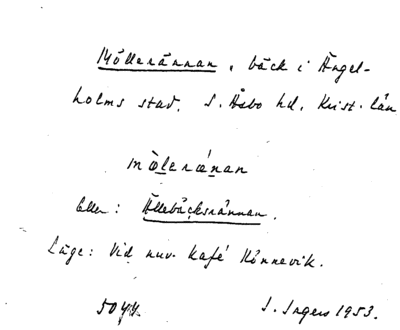 Möllerännan, bäck i Ängel-
holms stad, S. Åsbo hd, Krist. län
mòlerǽnan
Eller: Ållebäcksrännan.
Läge: Vid nuv. Kafé Rönnevik.
S. Ingers 1953.